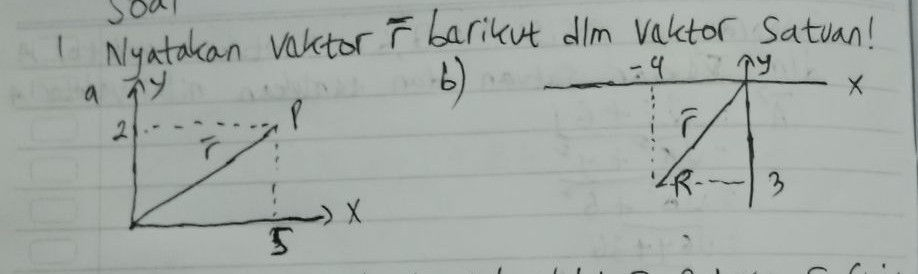 Soal
1 Nyatakan vaktor r̅ barikut dlm vaktor Satuan!
a y
2 P
r̅
X
5
b) -4 y X
r̅
R 3